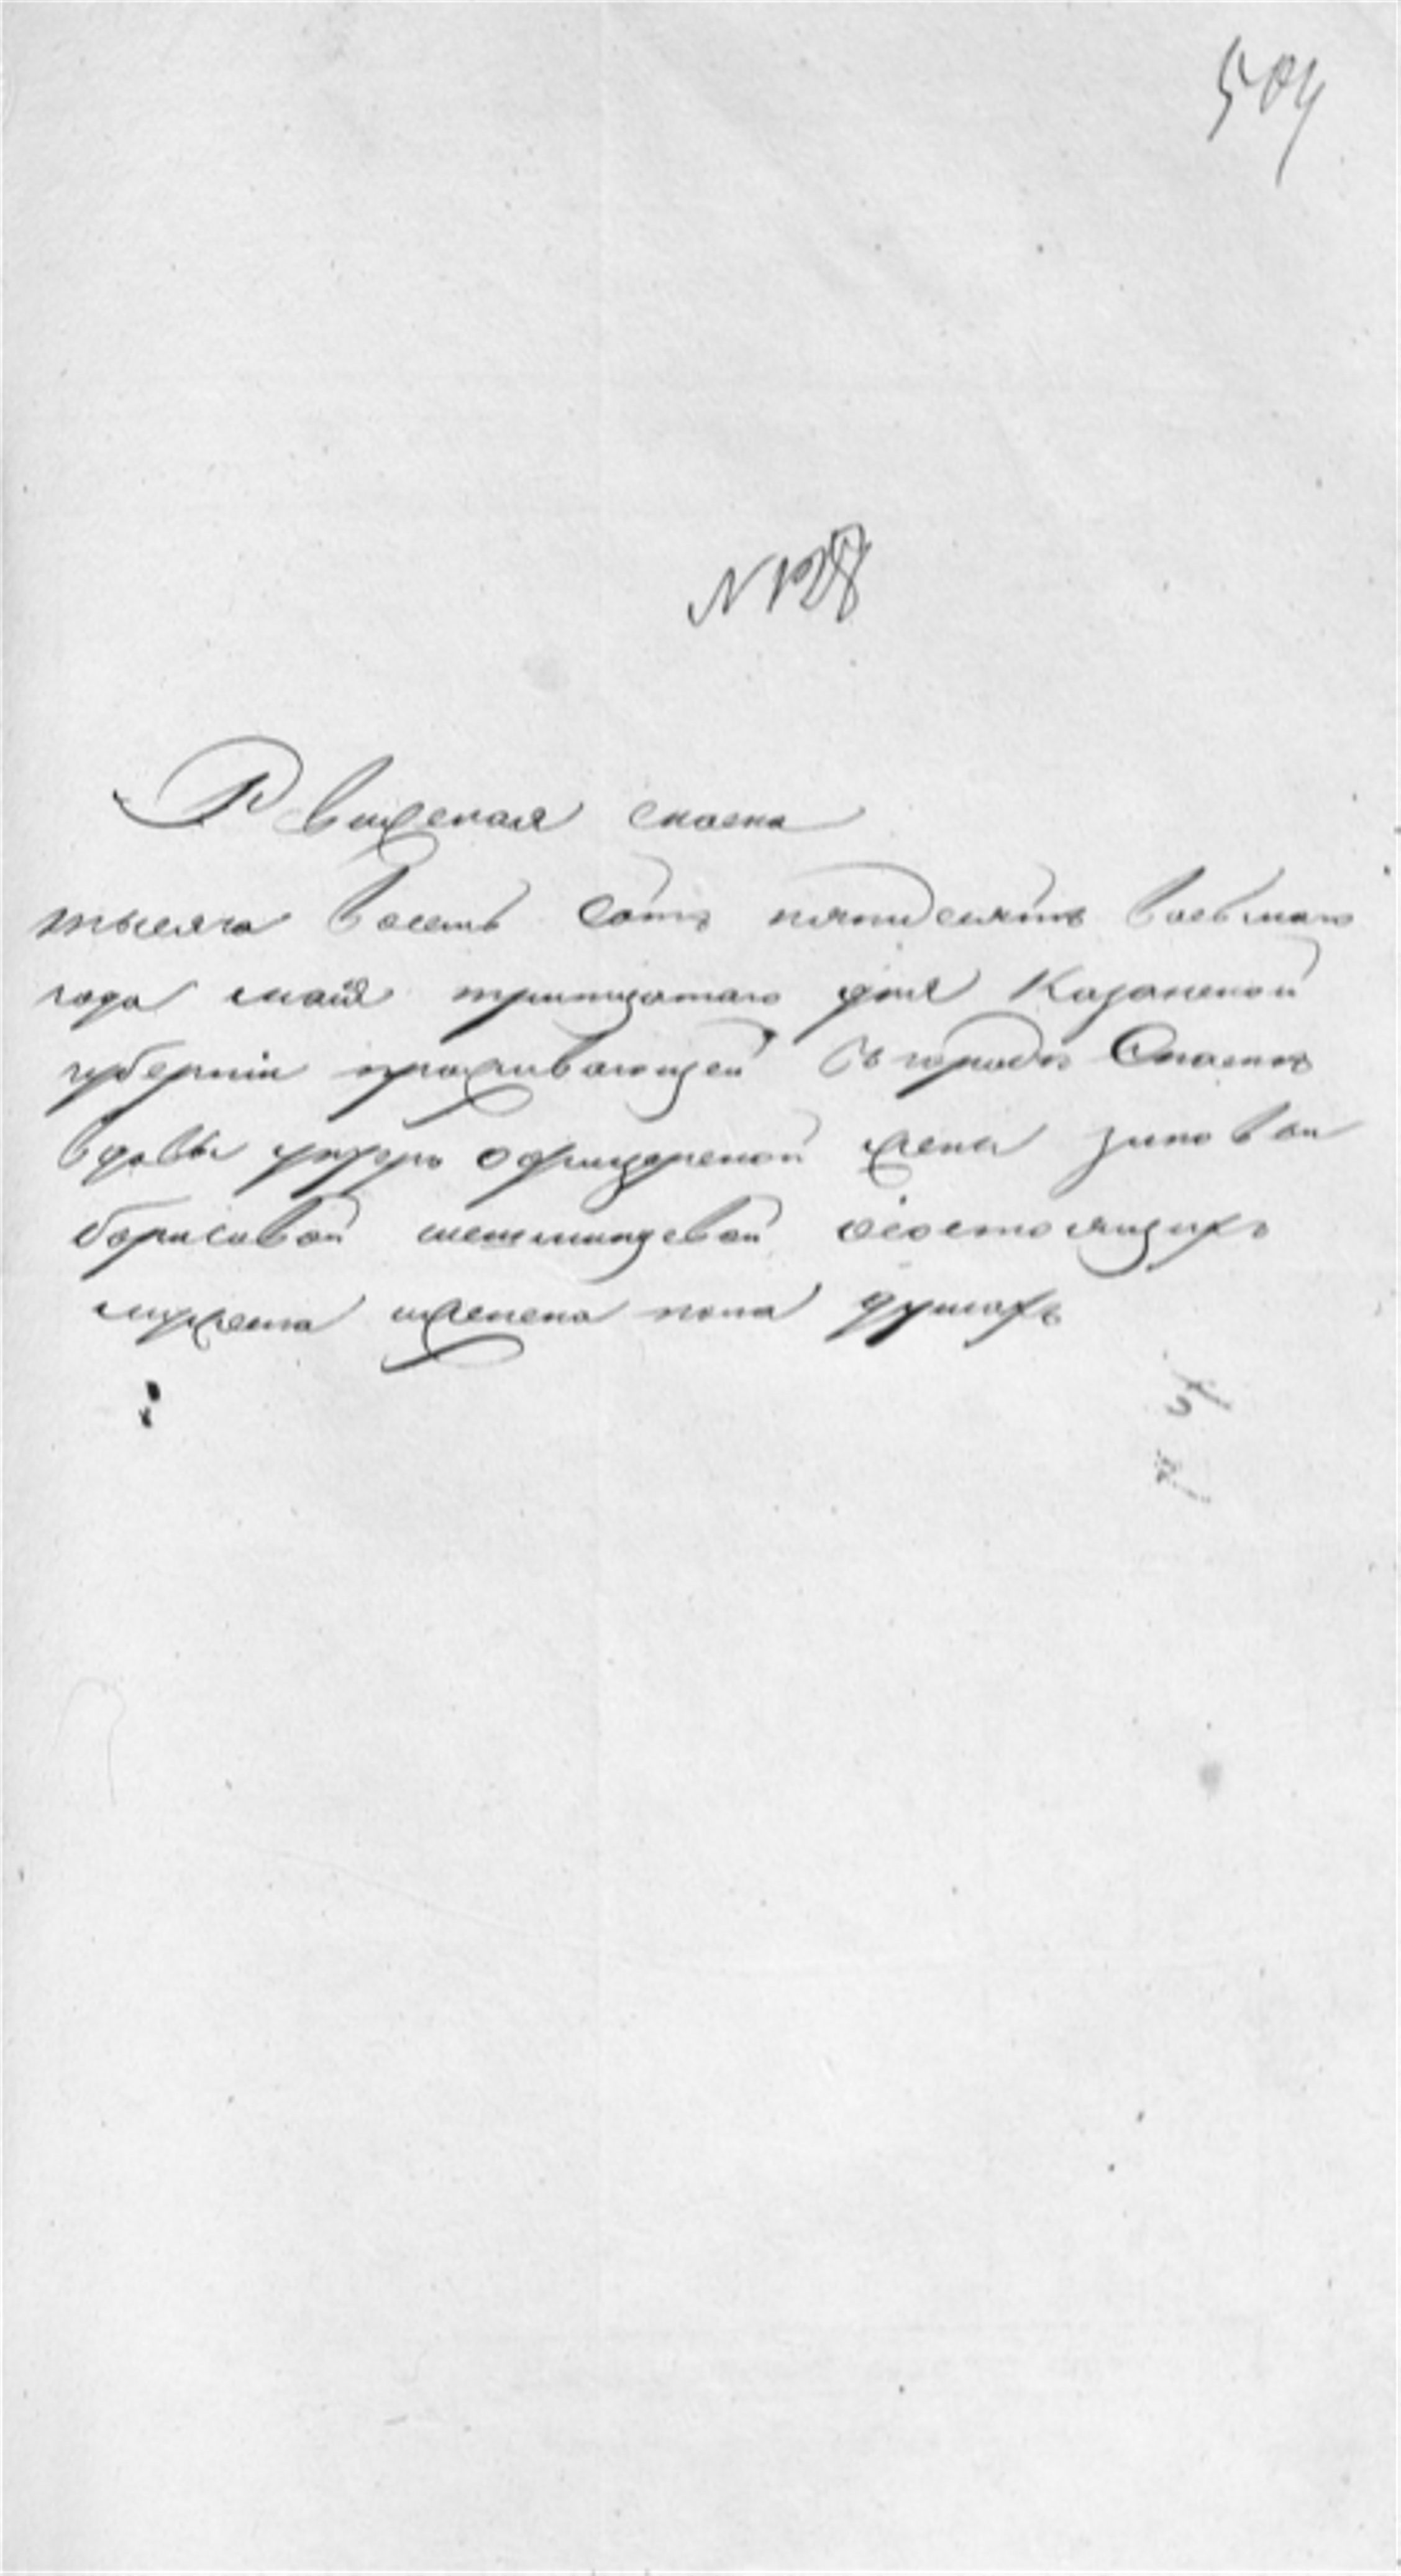 504
Ревижская скаска
тысяча восемь сотъ пятидесятъ восьмаго
года маия тритцатаго дня Казанской
губернiи проживающей въ городѣ Спаскѣ
вдовы ундеръ офицерской жены
борисовой осостоящихъ
мужеска иженска пола душахъ